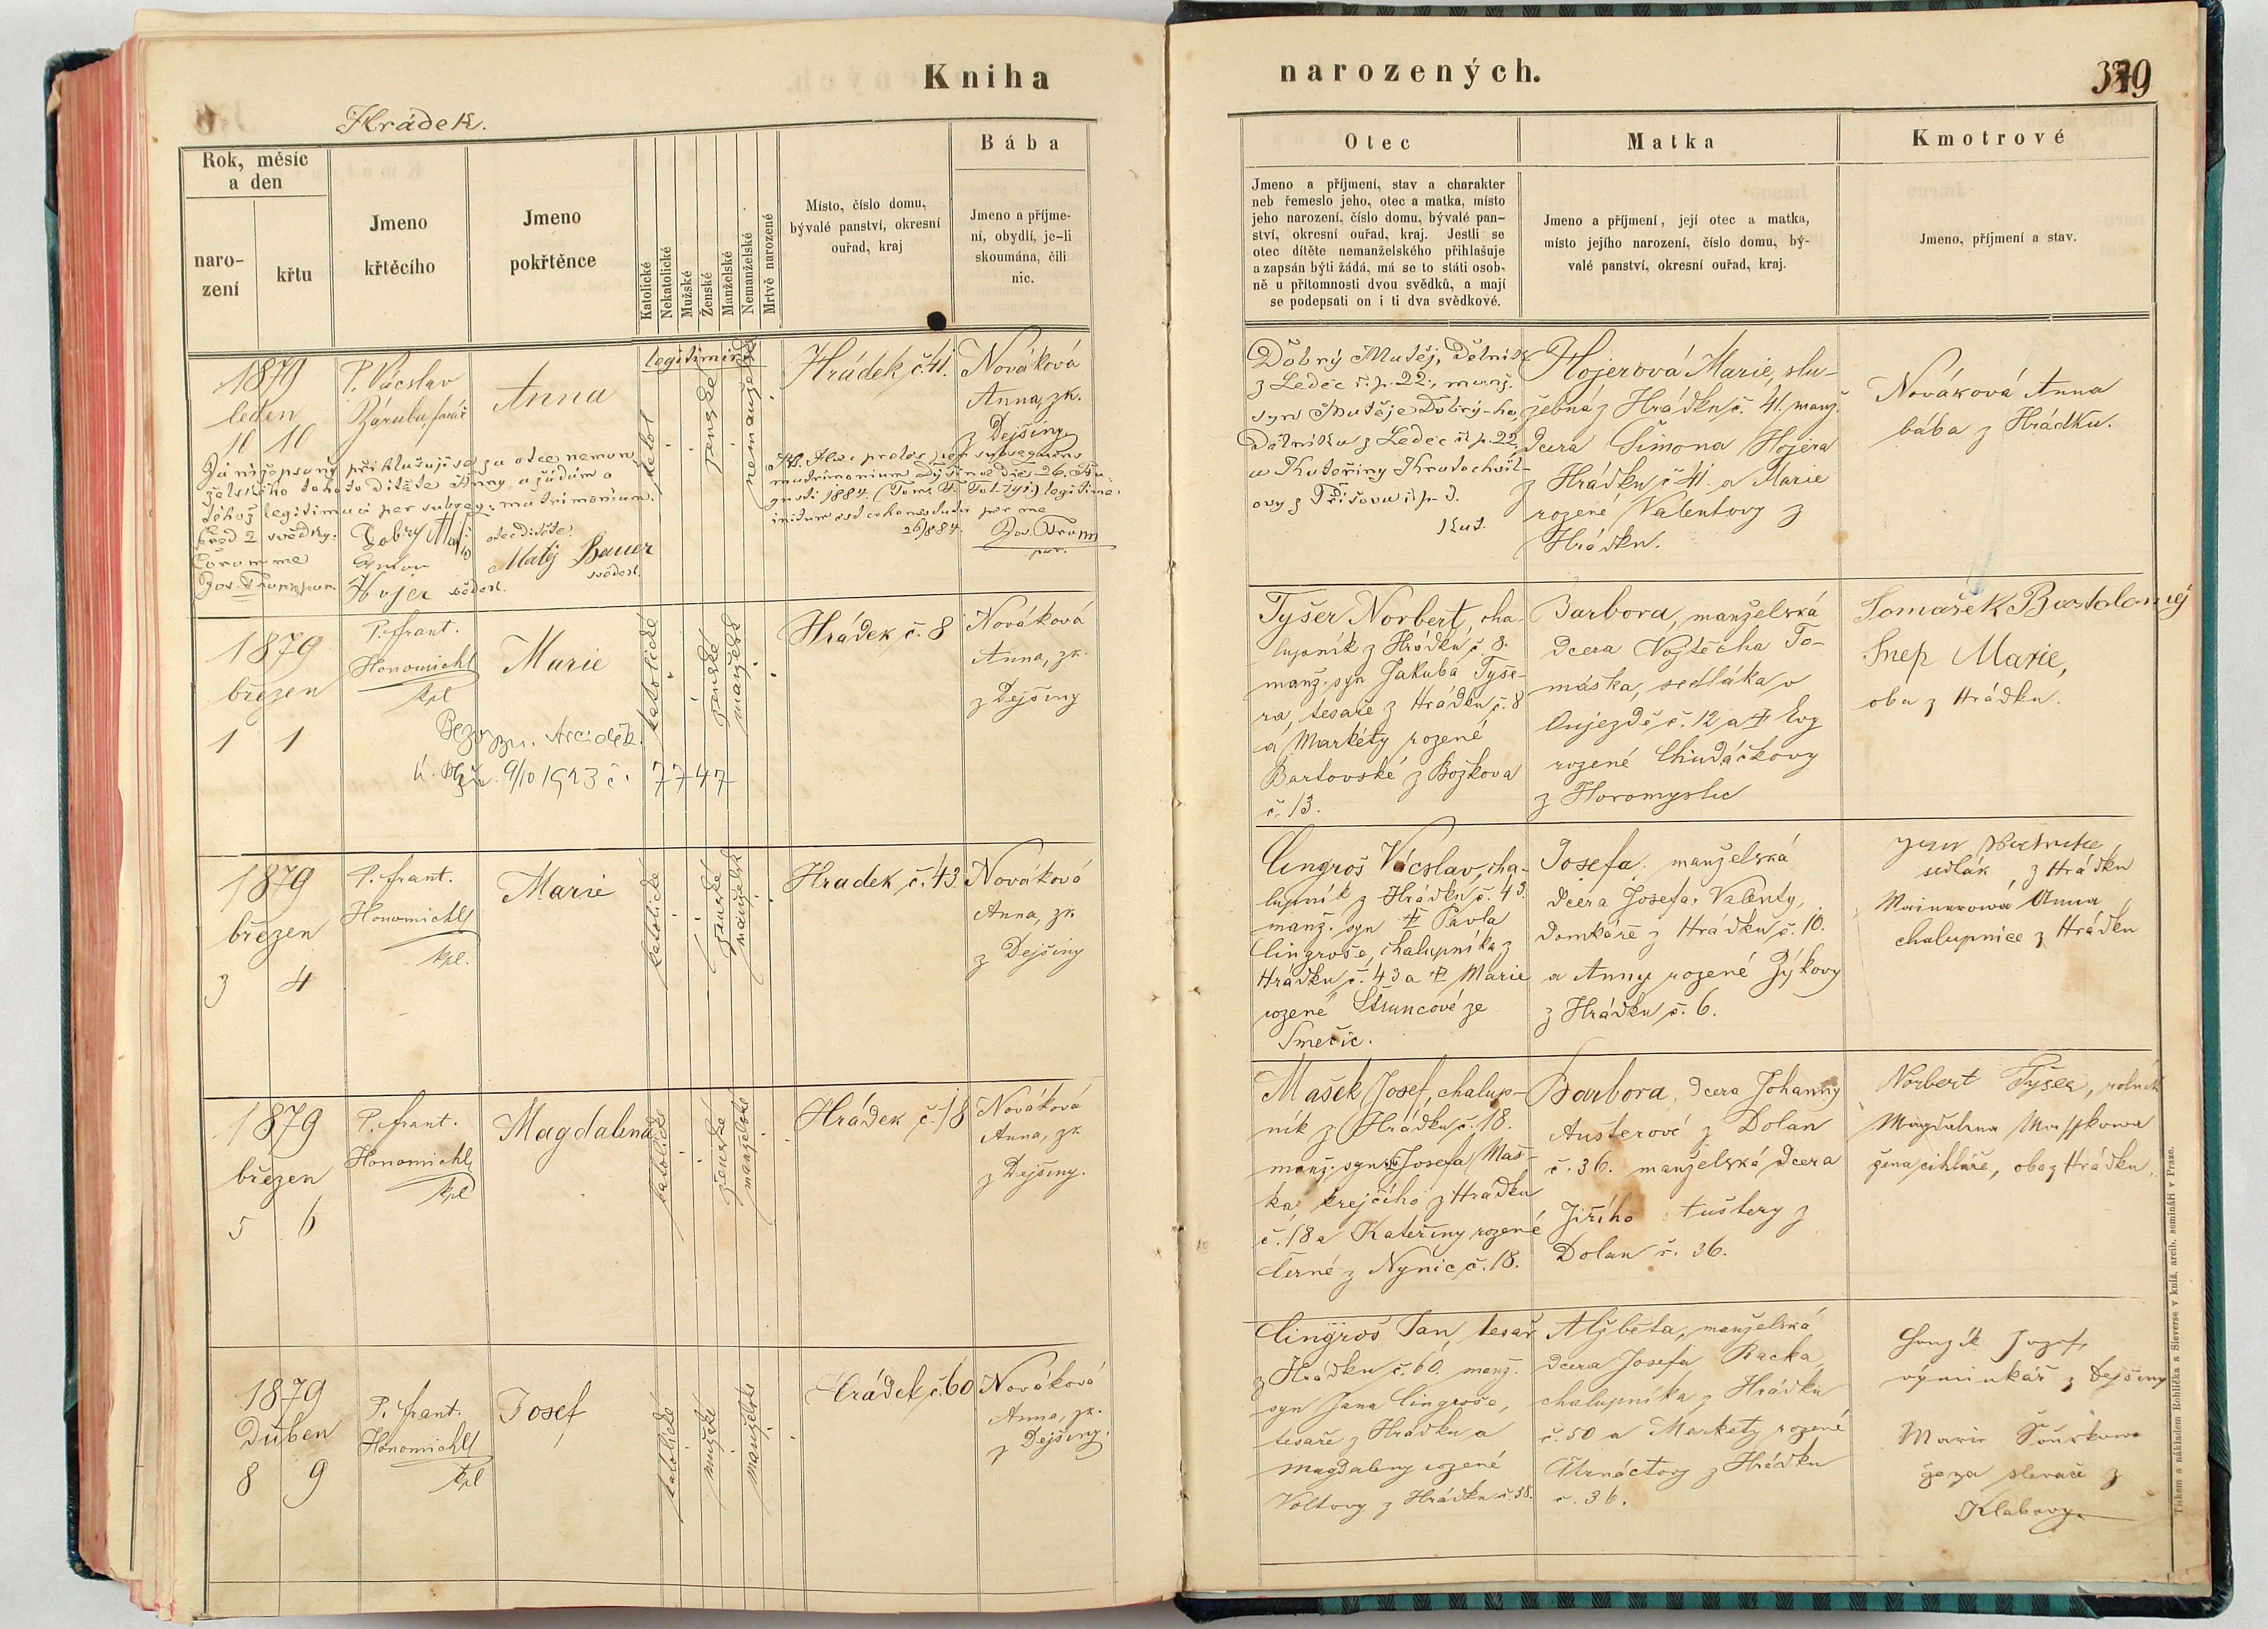 Kniha
Hrádek.
Rok, měsíc
a den
naro-
zení
křtu
Jmeno
křtěcího
Jmeno
pokřtěnce
Katolické
Nekatolické
Mužské
Ženské
Manželské
Nemanželské
Mrtvě narozené
Místo, číslo domu,
bývalé panství, okresní
ouřad, kraj
Bába
Jmeno a příjme-
ní, obydlí, je-li
skoumána, čili
nic.
1879
leden
10 10
P. Václav
Anna
legitimi
katol
ženské
nemanželské
Hrádek č. 41.
Nováková
Anna, zk.
z Dejšiny
Já nížepsaný přihlašuji se za otce neman
želského tohoto dítěte Anny, a žádám o
téhož legitimaci per subseq: matrimonium.
před 2 svědky:
Dobrý Matěj
otec dítěte
Coram me
Šimon
Hojer svědek.
Matěj Bauer
svědek.
NB. Haec proles per subsequens
matrimonium Dýšinae dies 26. Au-
gusti 1884. (Tom. F. Fol. 191.) legitima
26/8 84.
1879
březen
1 1
P. Frant.
Honomichl
kpl
Marie
katolické
ženské
manželské
Hrádek č. 8
Nováková
Anna, zk.
z Dejšiny
9/10 1923 č. 7747
1879
březen
3 4
P. Frant.
Honomichl
kpl.
Marie
katolické
ženské
manželské
Hradek č. 43.
Nováková
Anna, zk
z Dejšiny
1879
březen
5 6
P. Frant.
Honomichl
kpl
Magdalena
katolické
ženské
manželské
Hrádek č. 18
Nováková
Anna, zk
z Dejšiny.
1879
Duben
8 9
P. Frant.
Honomichl
kpl
Josef
katolické
mužské
manželské
Hrádek č. 60
Nováková
Anna, zk.
z Dejšiny.
narozených.
Otec
Jmeno a příjmení, stav a charakter
neb řemeslo jeho, otec a matka, místo
jeho narození, číslo domu, bývalé pan-
ství, okresní ouřad, kraj. Jestli se
otec dítěte nemanželského přihlašuje
a zapsán býti žádá, má se to státi osob-
ně u přítomnosti dvou svědků, a mají
se podepsati on i ti dva svědkové.
Matka
Jmeno a příjmení, její otec a matka,
místo jejího narození, číslo domu, bý-
valé panství, okresní ouřad, kraj.
Kmotrové
Jmeno, příjmení a stav.
Dobrý Matěj, dělník
z Ledec č. p. 22, manž.
syn Matěje Dobrý-ho,
dělníka z Ledec č. p. 22
a Kateřiny Kratochvíl-
ovy z
Hojerová Marie, slu-
žebná z Hrádku č. 41. manž.
dcera Šimona Hojera
z Hrádku č. 41. a Marie
rozené Valentovy z
Hrádku.
Nováková Anna
bába z Hrádku.
Tyšer Norbert, cha-
lupník z Hrádku č. 8.
manž. syn Jakuba Tyše-
ra, tesaře z Hrádku č. 8
a Markéty rozené
Bartovské z Božkova
č. 13.
Barbora, manželská
dcera Vojtěcha To-
máška, sedláka v
Oujezdě č. 12 a † Evy
rozené Chudáčkovy
z Horomyslic
Tomašek Bartolomej
Šnep Marie,
oba z Hrádku.
Cingroš Václav, cha-
lupník z Hrádku č. 43
manž. syn † Pavla
Cingroše, chalupníka z
Hrádku č. 43 a † Marie
rozené Štruncové ze
Smečic.
Josefa, manželská
dcera Josefa Valenty,
domkáře z Hrádku č. 10.
a Anny rozené Zýkovy
z Hrádku č. 6.
sedlák z Hrádku
Mainerowá Anna
chalupnice z Hrádku
Mašek Josef, chalup-
ník z Hrádku č. 18.
manž. syn † Josefa Maš-
ka krejčího z Hrádku
č. 18 a Kateřiny rozené
Černé z Nynic č. 18.
Barbora, dcera Johanny
Aušterové z Dolan
č. 36. manželská dcera
Jiřího Auštery z
Dolan č. 36.
Norbert Tyšer, rolník
Magdalena Maschkowa
žena cihláře, oba z Hrádku.
Cingroš Jan, tesař
z Hrádku č. 60. manž.
syn Jana Cingroše,
tesaře z Hrádku a
Magdaleny rozené
Voltovy z Hrádku č. 38.
Alžběta, manželská
dcera Josefa Racka,
chalupníka z Hrádku
č. 50 a Markety rozené
Čtrnáctovy z Hrádku
č. 36.
výminkář z Dejšiny
žena slevače z
Klabavy
Tiskem a nákladem Rohlíčka a Sieverse v kníž. arcib. semináři v Praze.